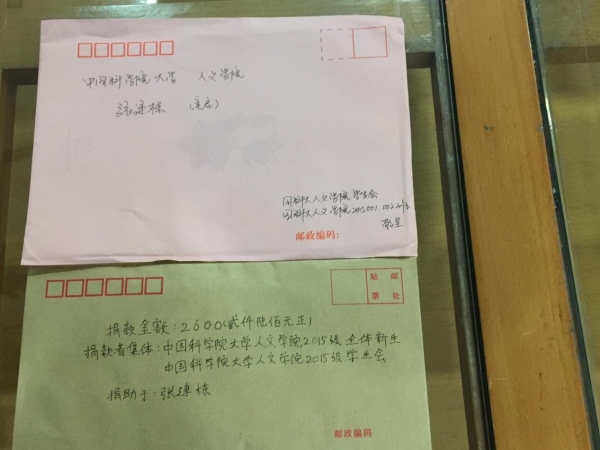 中国科学院大学 人文学院
张连栋 (亲启)
国科大人文学院学生会
国科大人文学院
敬呈
邮政编码:
贴 邮
票 处
捐款金额:2600(贰仟陆佰元正)
捐款者集体:中国科学院大学人文学院2015级全体新生
中国科学院大学人文学院2015级学生会
捐助于:张连栋
邮政编码